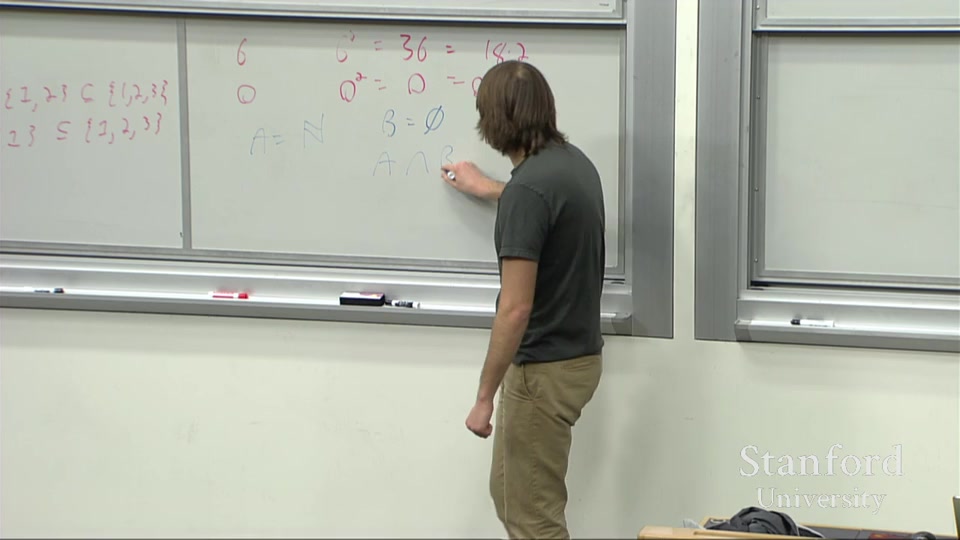 {1, 2} ⊆ {1, 2, 3}
2} ⊆ {1, 2, 3}
6 6² = 36 = 18·2
0 0² = 0 =
A = ℕ B = ∅
A ∩ B
Stanford
University